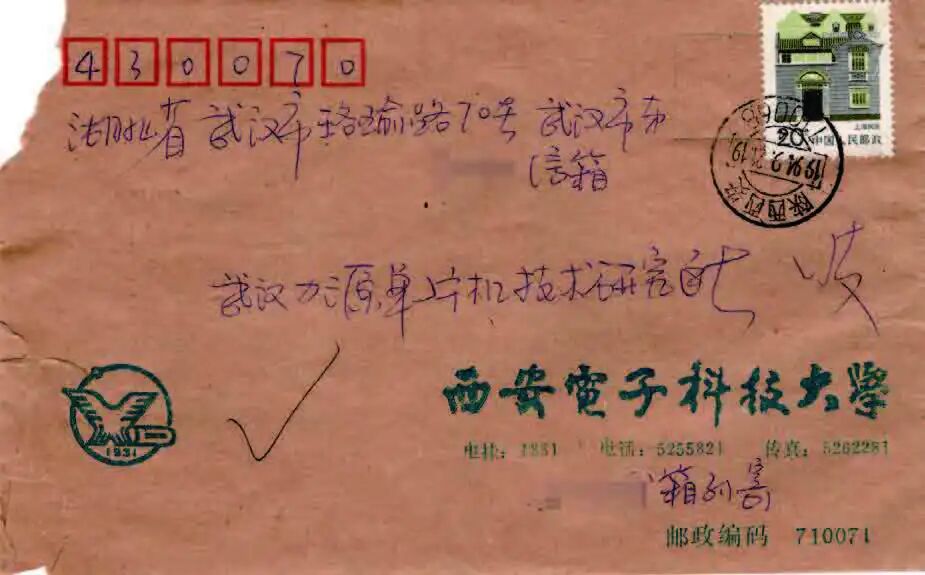 430070
湖北省武汉市珞瑜路70号 武汉市
信箱
武汉力源单片机技术研究所 收
上海民居
中国人民邮政
20
陕西西安
西安電子科技大學
电挂：1331 电话：5255821 传真：5262281
信箱 刘寄
邮政编码 710071
1931